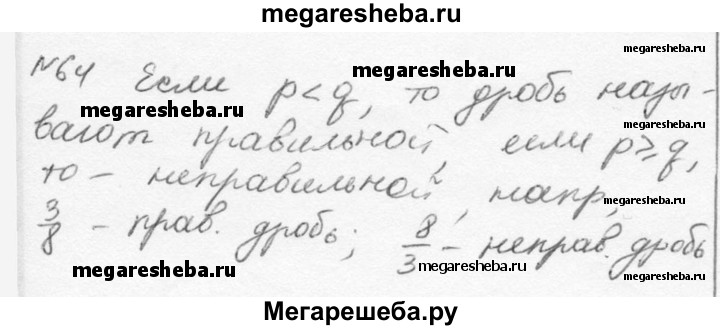 megaresheba.ru
№64 Если p < q, то дробь назы-
megaresheba.ru
megaresheba.ru
megaresheba.ru
вают правильной, если p ≥ q,
megaresheba.ru
то - неправильной, напр,
megaresheba.ru
3/8 - прав. дробь; 8/3 - неправ. дробь
megaresheba.ru
megaresheba.ru
Мегарешеба.ру